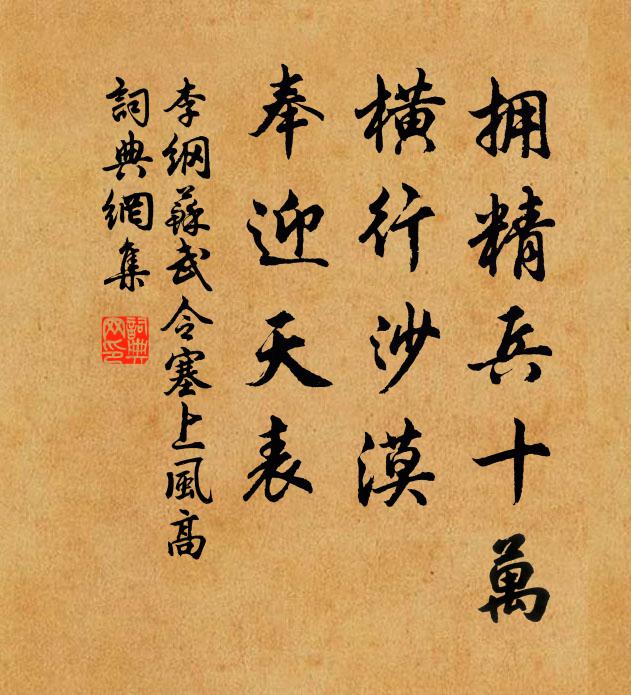 拥精兵十萬
橫行沙漠
奉迎天表
李綱蘇武令塞上風高
詞典網集
詞典網印